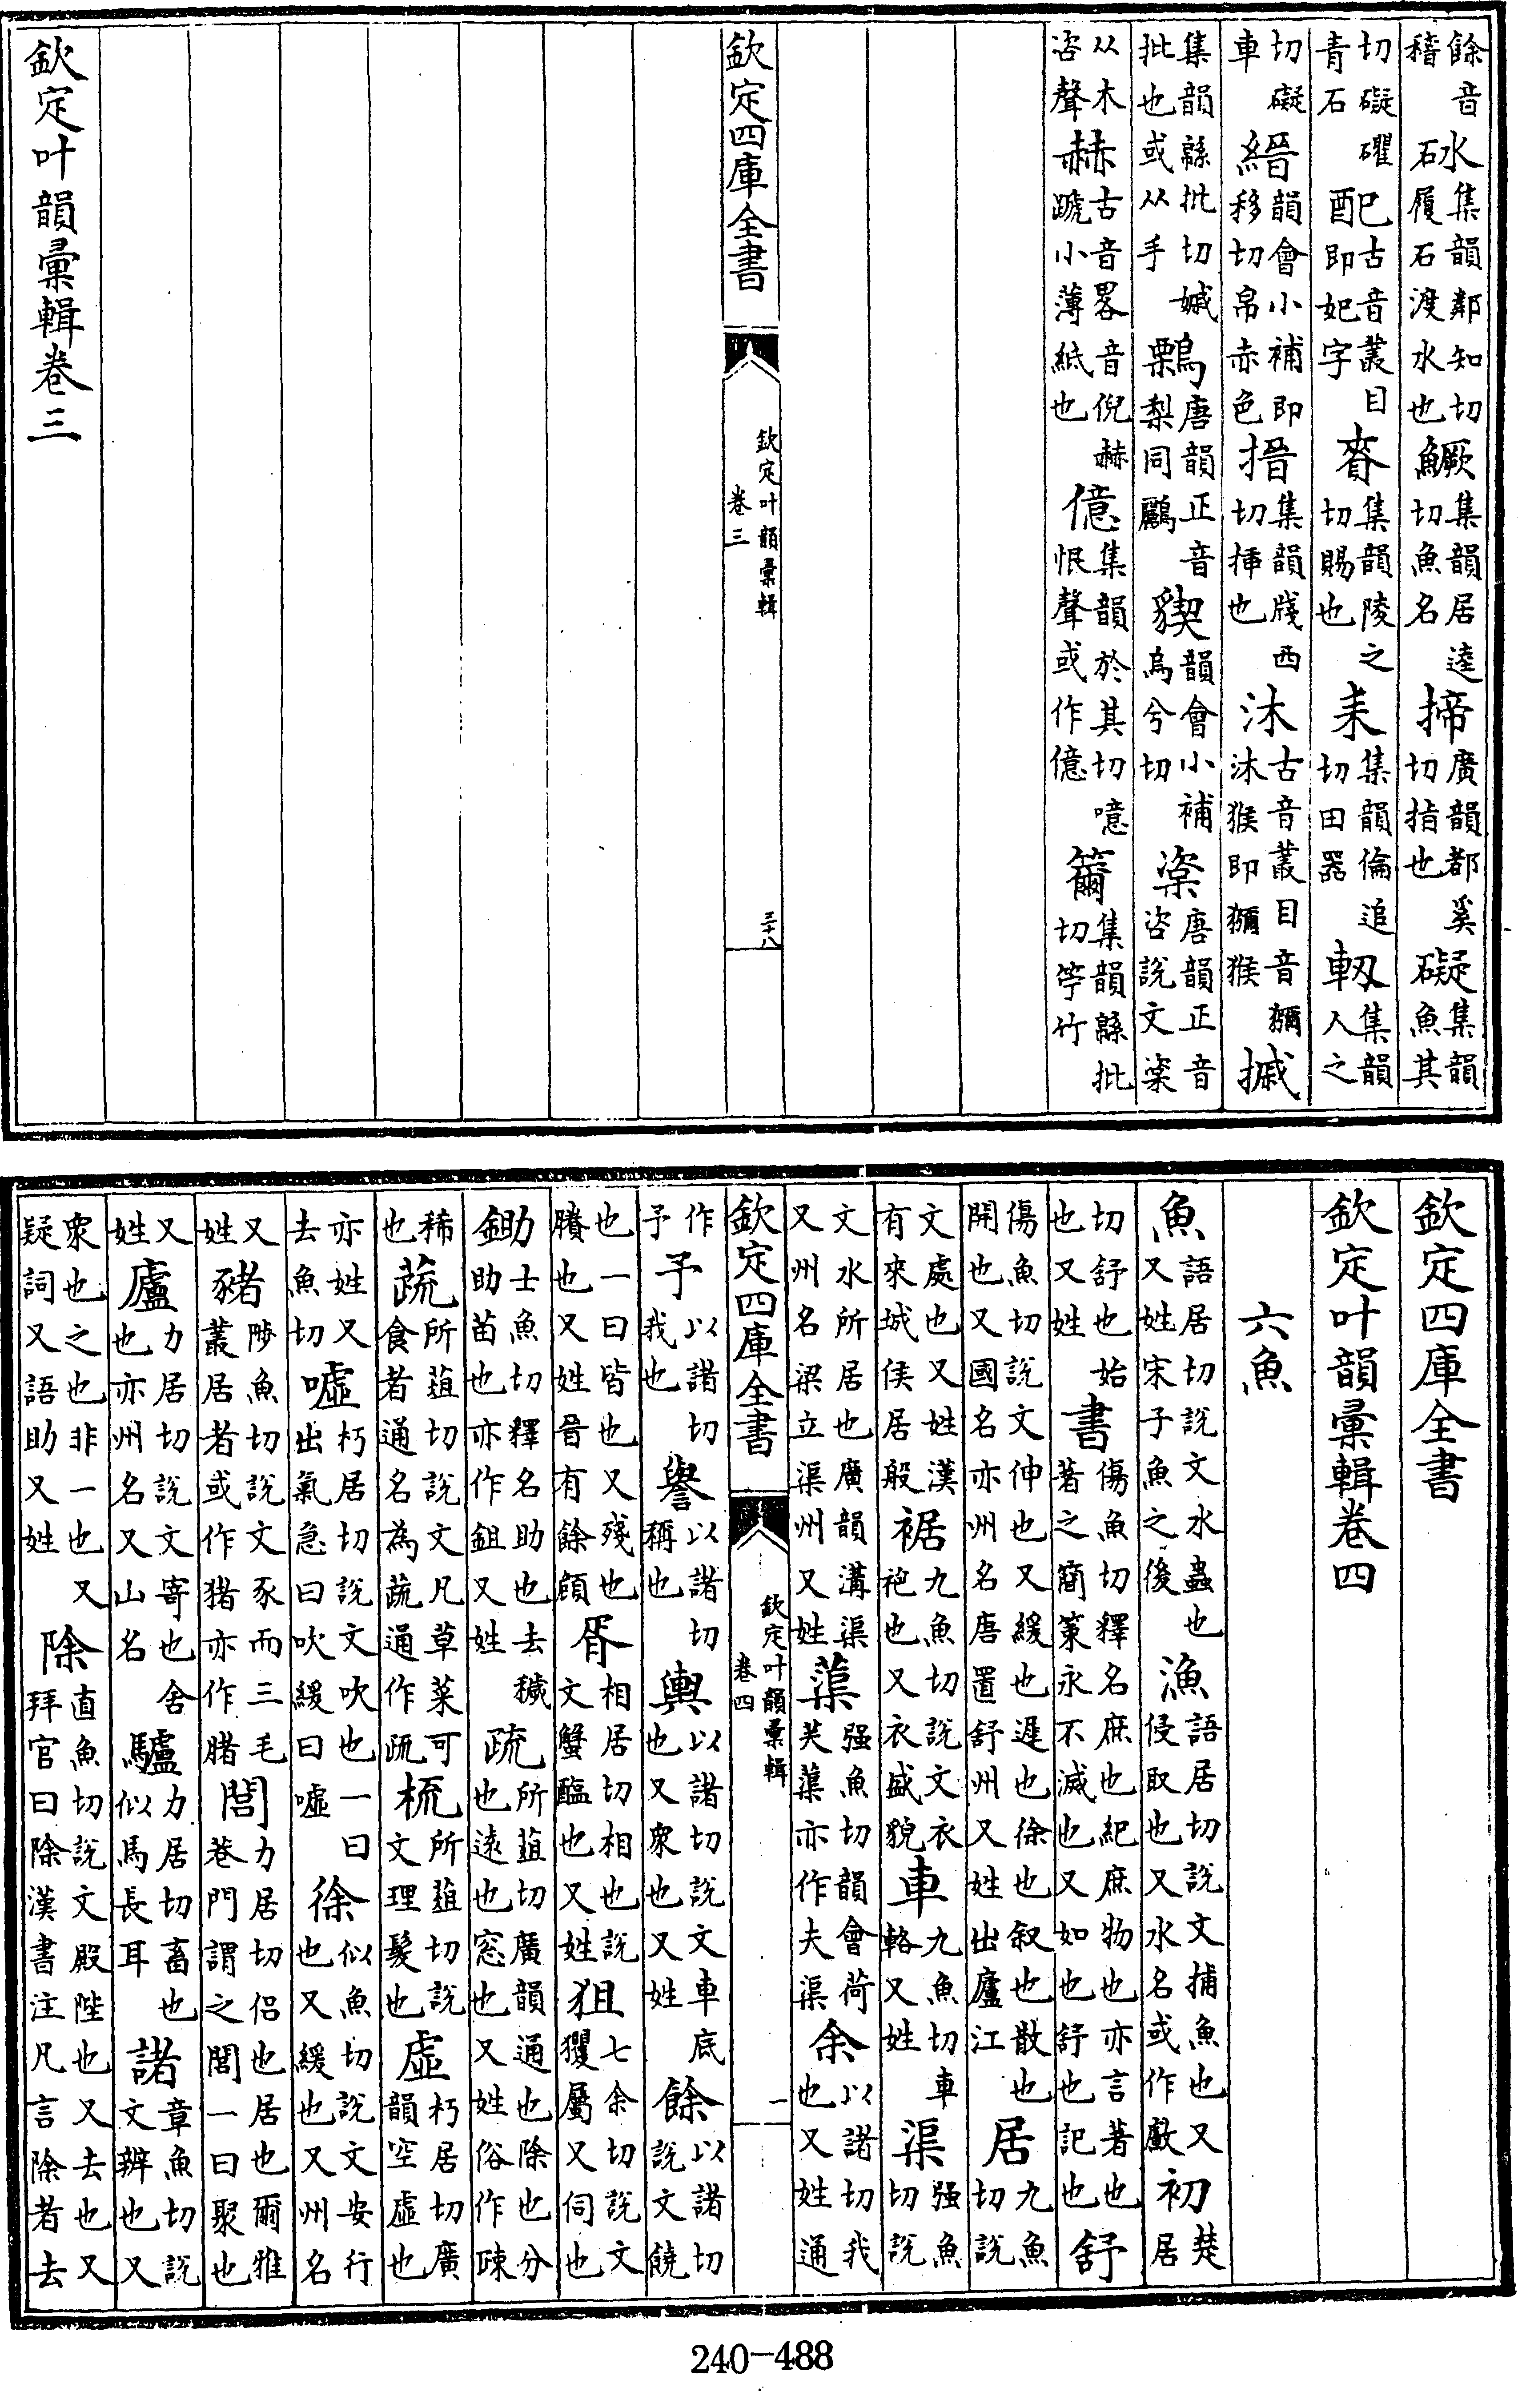 餘音稽砯集韻鄰知切履石渡水也鱖集韻居逵切魚名揥廣韻都奚切指也礙集韻魚其
切礙礭青石配古音叢目即妃字賚集韻陵之切賜也耒集韻倫追切田器軔集韻人之
切礙車縉韻會小補即移切帛赤色搢集韻牋西切揷也沐古音叢目音獼沐猴即獼猴搣
集韻緜批切搣批也或从手鷅唐韻正音梨同鸝猰韻會小補烏兮切楶唐韻正音咨說文楶
从木咨聲赫古音畧音倪赫蹏小薄紙也億集韻於其切噫恨聲或作億籋集韻緜批切筡竹
欽定四庫全書
欽定叶韻彚輯
卷三
三十八
欽定叶韻彚輯卷三
欽定四庫全書
欽定叶韻彚輯卷四
六魚
魚語居切說文水蟲也又姓宋子魚之後漁語居切說文捕魚也又侵取也又水名或作䱷初楚居
切舒也始也又姓書傷魚切釋名庶也紀庶物也亦言著也著之簡䇿永不滅也又如也舒也記也舒
傷魚切說文伸也又緩也遲也徐也叙也散也開也又國名亦州名唐置舒州又姓出廬江居九魚切說
文處也又姓漢有來城侯居般裾九魚切說文衣袍也又衣盛貌車九魚切車輅又姓渠强魚切說
文水所居也廣韻溝渠又州名梁立渠州又姓蕖强魚切韻會荷芙蕖亦作夫渠余以諸切我也又姓通
欽定四庫全書
欽定叶韻彚輯
卷四
一
作予予以諸切我也譽以諸切稱也輿以諸切說文車底也又衆也又姓餘以諸切說文饒
也一曰皆也又殘也賸也又姓晉有餘頠胥相居切相也說文蟹醢也又姓狙七余切說文玃屬又伺也
鋤士魚切釋名助也去穢助苗也亦作鉏又姓疏所葅切廣韻通也除也分也遠也窓也又姓俗作疎
稀也蔬所葅切說文凡草菜可食者通名為蔬通作疏梳所葅切說文理髮也虛朽居切廣韻空虛也
亦姓又去魚切噓朽居切說文吹也一曰出氣急曰吹緩曰噓徐似魚切說文安行也又緩也又州名
又姓豬陟魚切說文豕而三毛叢居者或作猪亦作䐗閭力居切侶也居也爾雅巷門謂之閭一曰聚也
又姓廬力居切說文寄也舍也亦州名又山名驢力居切畜也似馬長耳諸章魚切說文辨也又
衆也之也非一也又疑詞又語助又姓除直魚切說文殿陛也又去也又拜官曰除漢書注凡言除者去
240-488